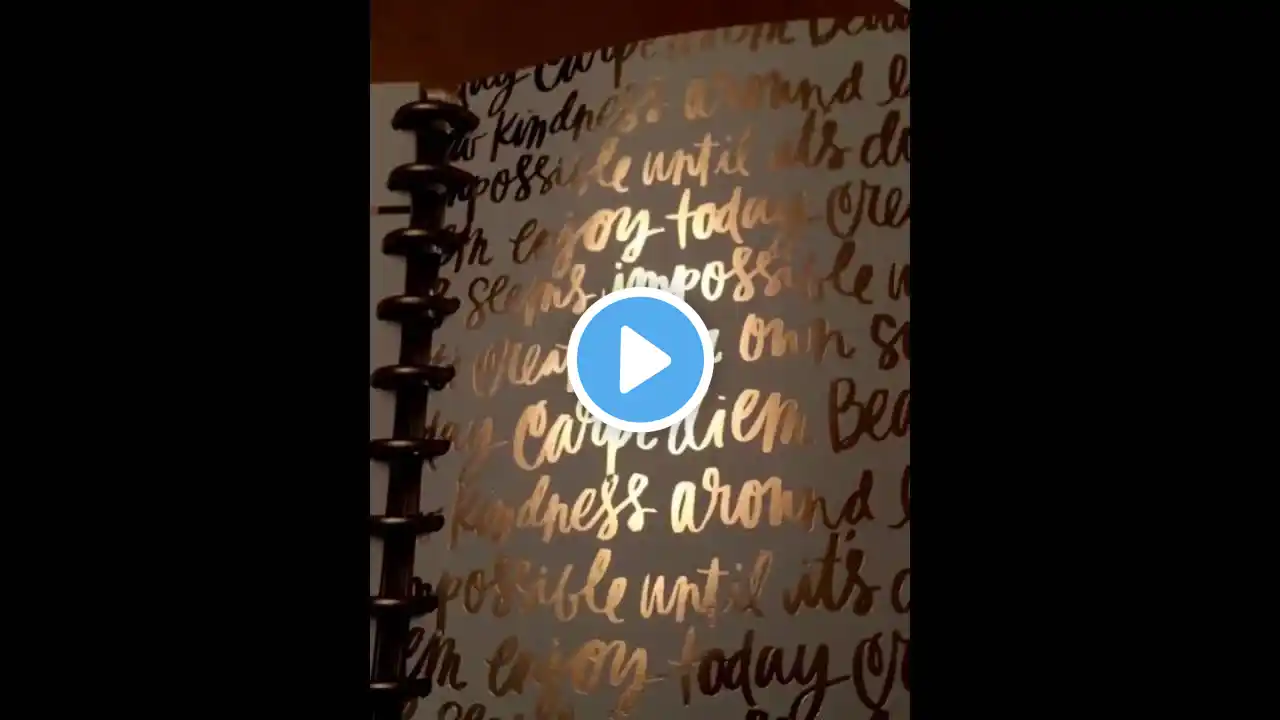 Carpe diem Bea
kindness around
possible until it's d
em enjoy today Cre
seems impossible
own s
Carpe diem Bea
kindness around
possible until it's
em enjoy today Cr